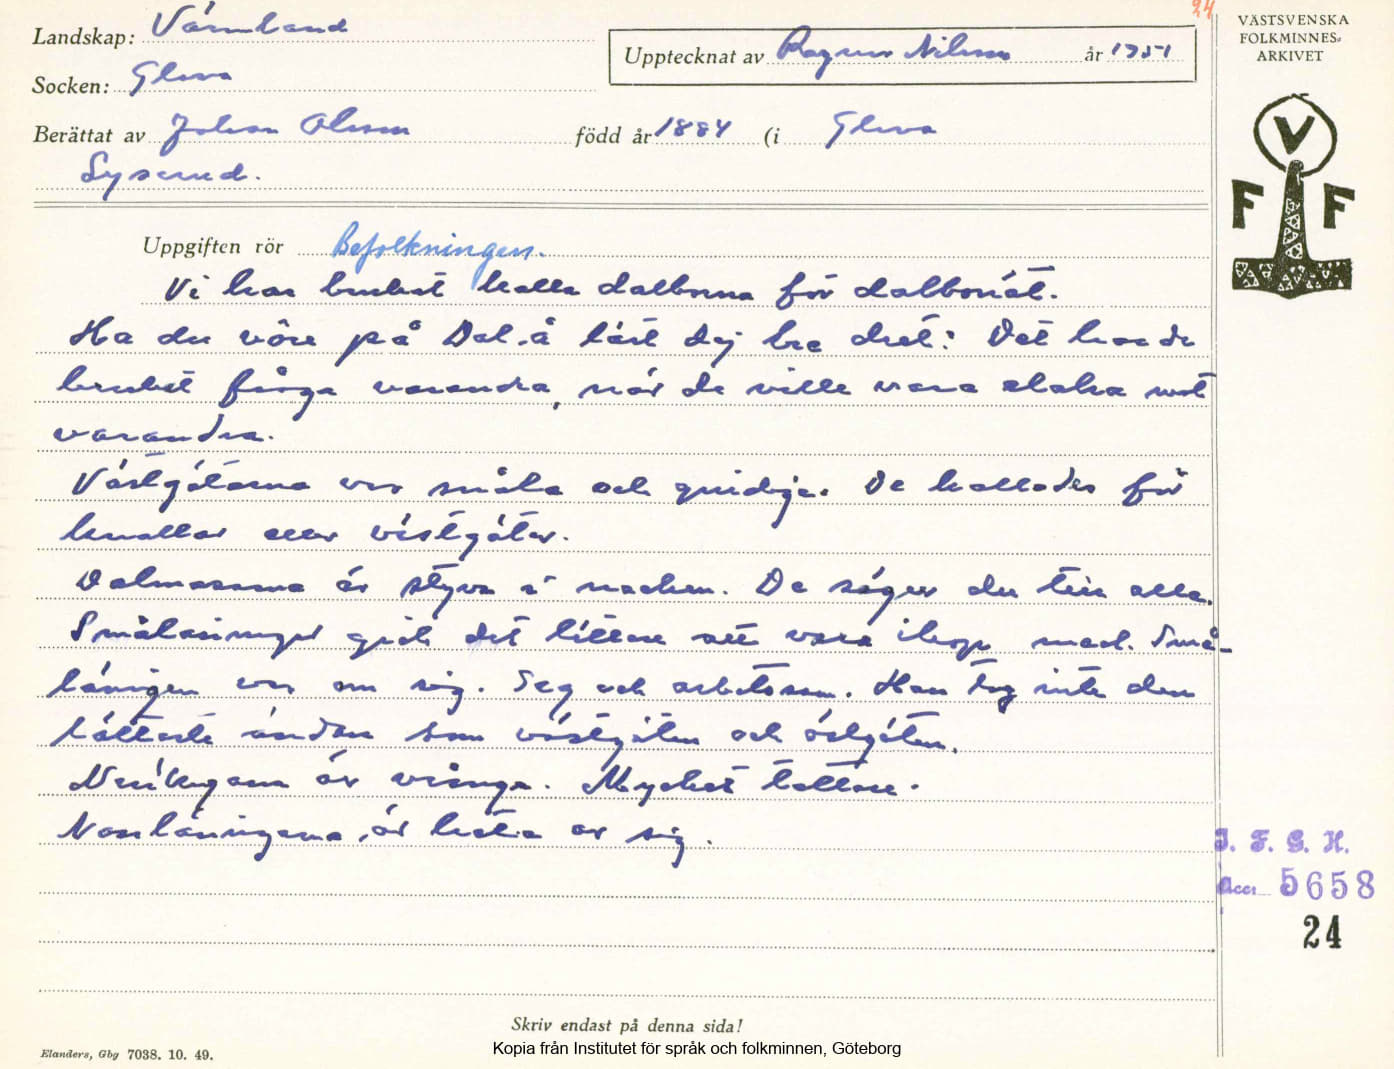 24
Landskap: Värmland
Upptecknat av Ragnar Nilsson år 1951
VÄSTSVENSKA
FOLKMINNES-
ARKIVET
Socken: Glava
Berättat av Johan Olsson född år 1884 (i Glava
Syserud.
V
F F
Uppgiften rör Befolkningen.
Vi har brukat kalla dalborna för dalbonät.
Ha du vôre på Dal å lärt dej bre dret? Det har de
brukat fråga varandra, när de ville vara elaka mot
varandra.
Västgötarna var snåla och gnidiga. De kallades för
knallar eller västgötar.
Dalmasarna är styva i nacken. De säger du till alla.
Smålänningar gick det lättare att vara ihop med. Små-
länningen var om sig. Seg och arbetsam. Han tog inte den
lättaste ändan som västgöten och östgöten.
Närkingarna är vrånga. Mycket tattare.
Norrlänningarna är hala av sig.
I. F. G. H.
Acc. 5658
24
Skriv endast på denna sida!
Elanders, Gbg 7038. 10. 49.
Kopia från Institutet för språk och folkminnen, Göteborg